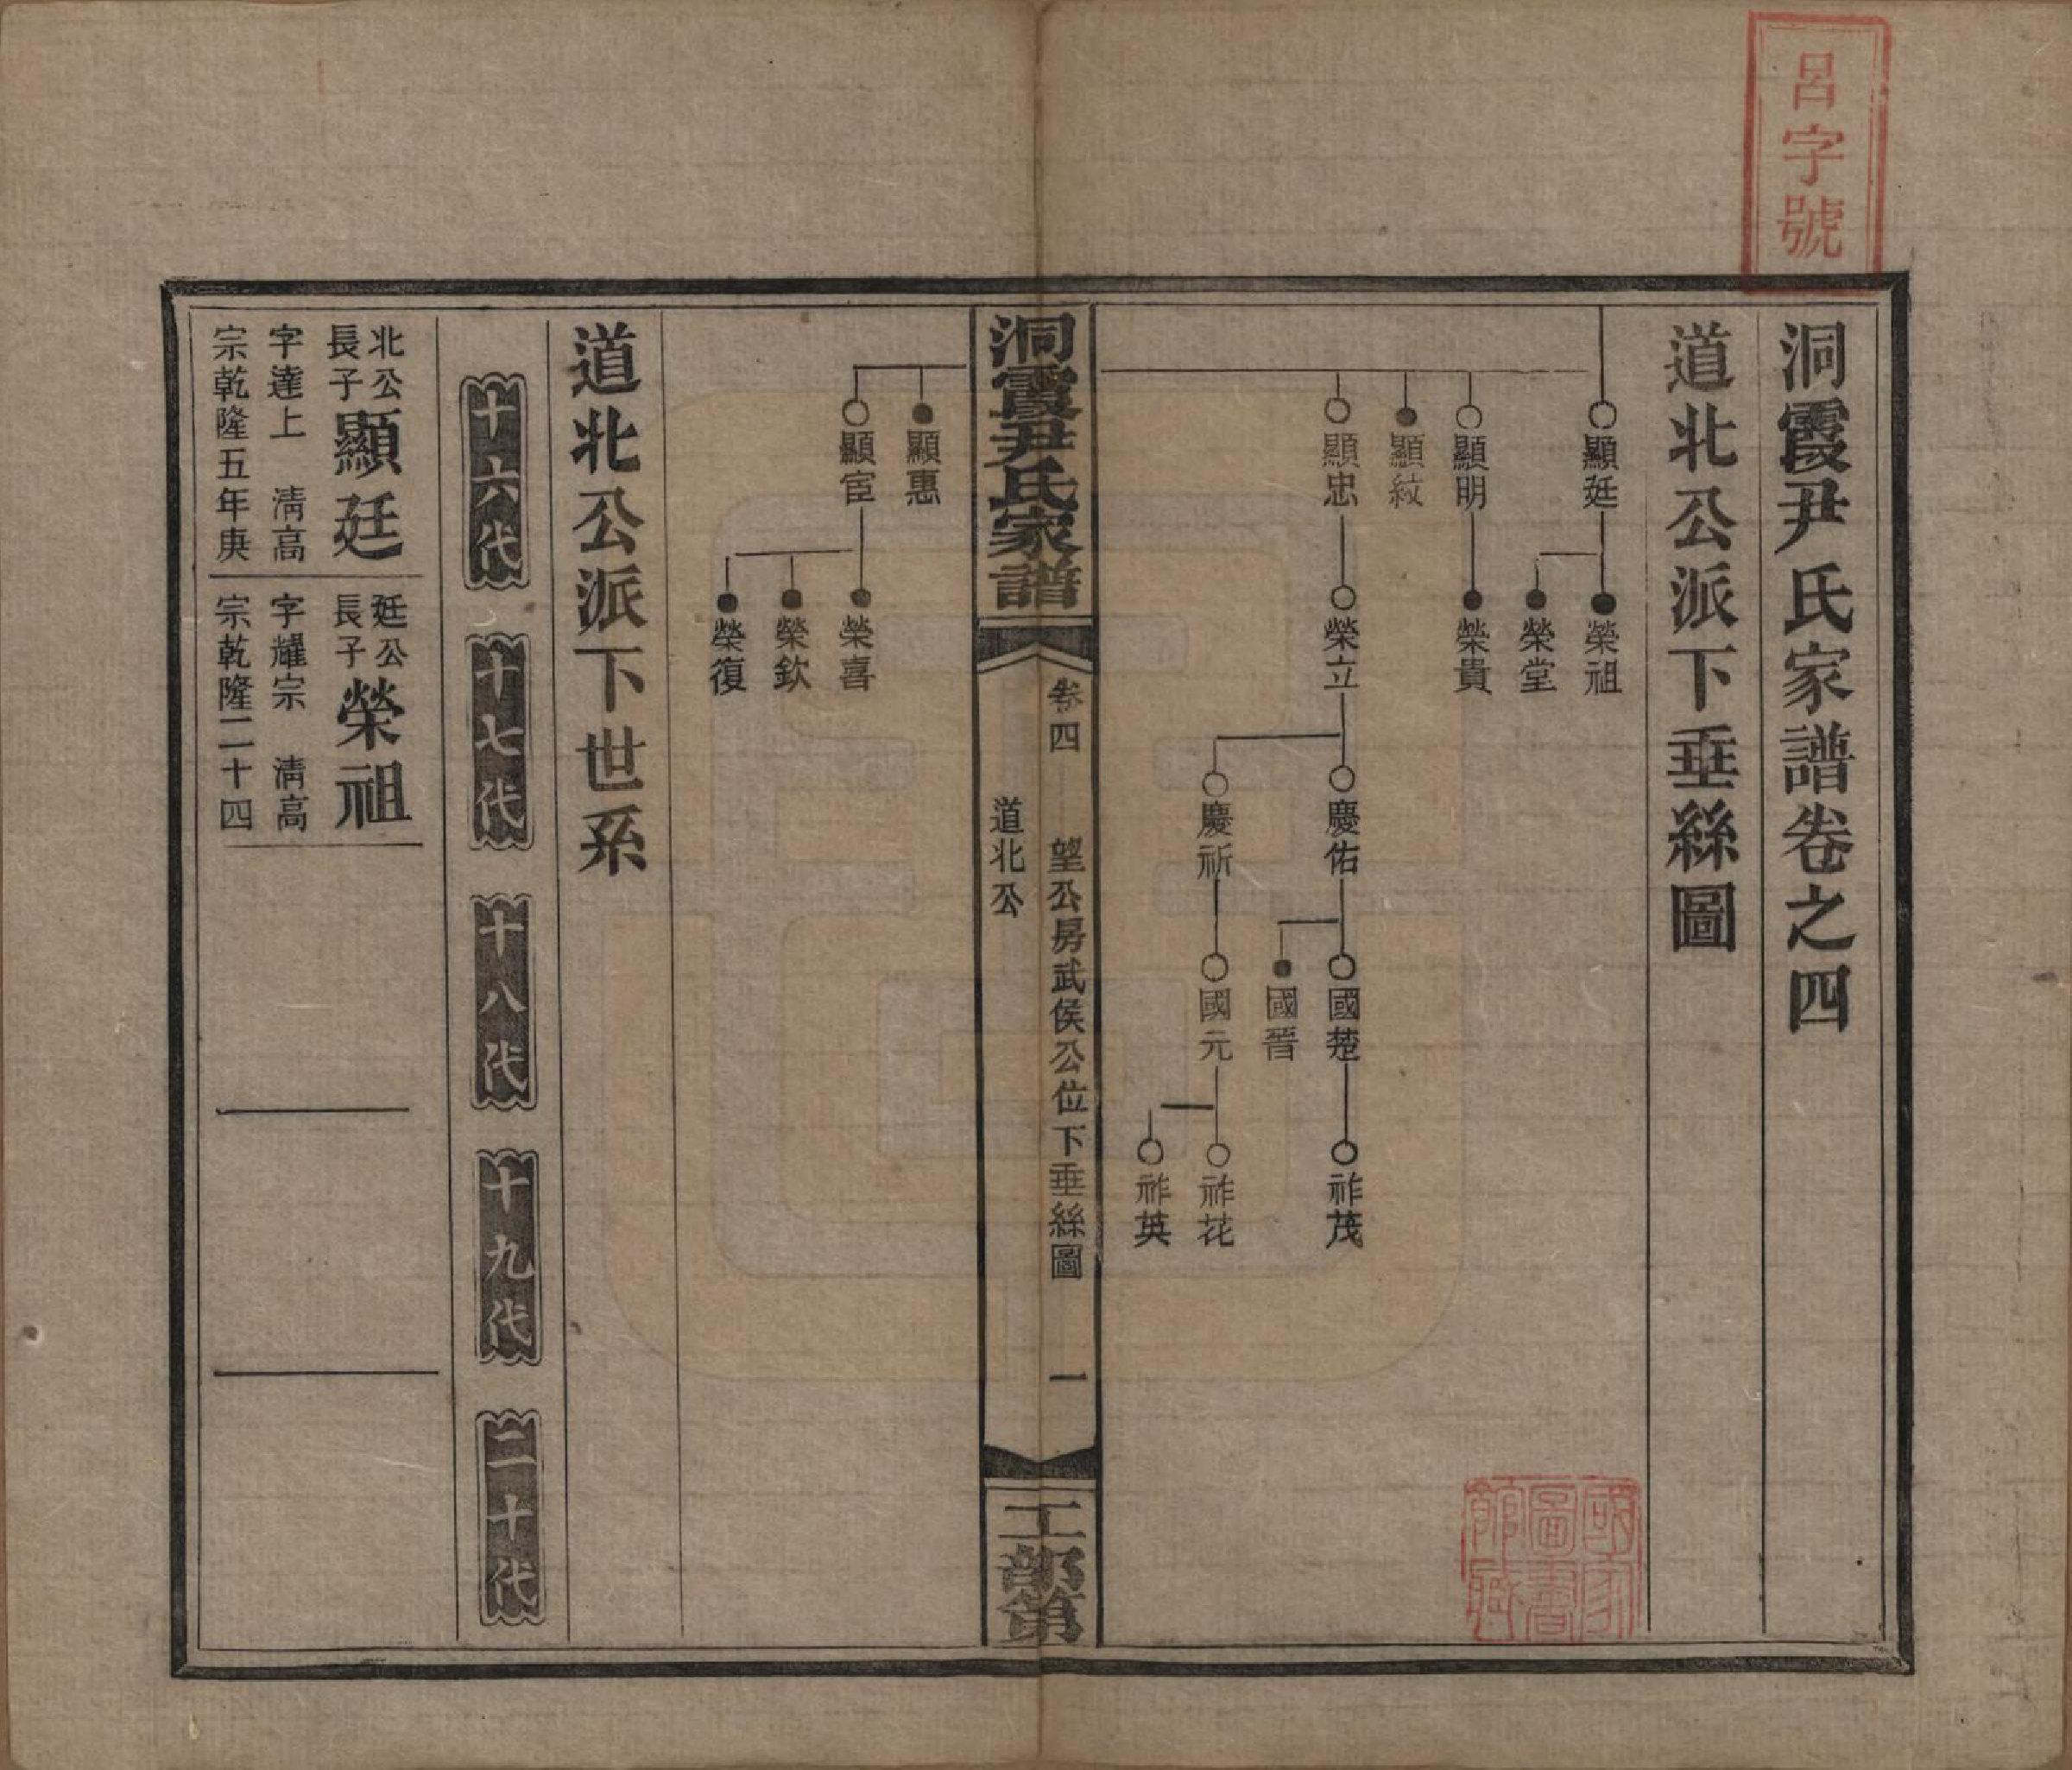 呂字號
洞霞尹氏家譜卷之四
道北公派下垂絲圖
顯廷
榮祖
榮堂
顯明
榮貴
顯紋
顯忠
榮立
慶佑
國楚
祚茂
國晉
慶祈
國元
祚花
祚英
國家圖書館藏
洞霞尹氏家譜
卷四 望公房武侯公位下垂絲圖 一
道北公
工部第
顯惠
顯宦
榮喜
榮欽
榮復
道北公派下世系
十六代 十七代 十八代 十九代 二十代
北公長子顯廷
字達上 清高
宗乾隆五年庚
廷公長子榮祖
字耀宗 清高
宗乾隆二十四